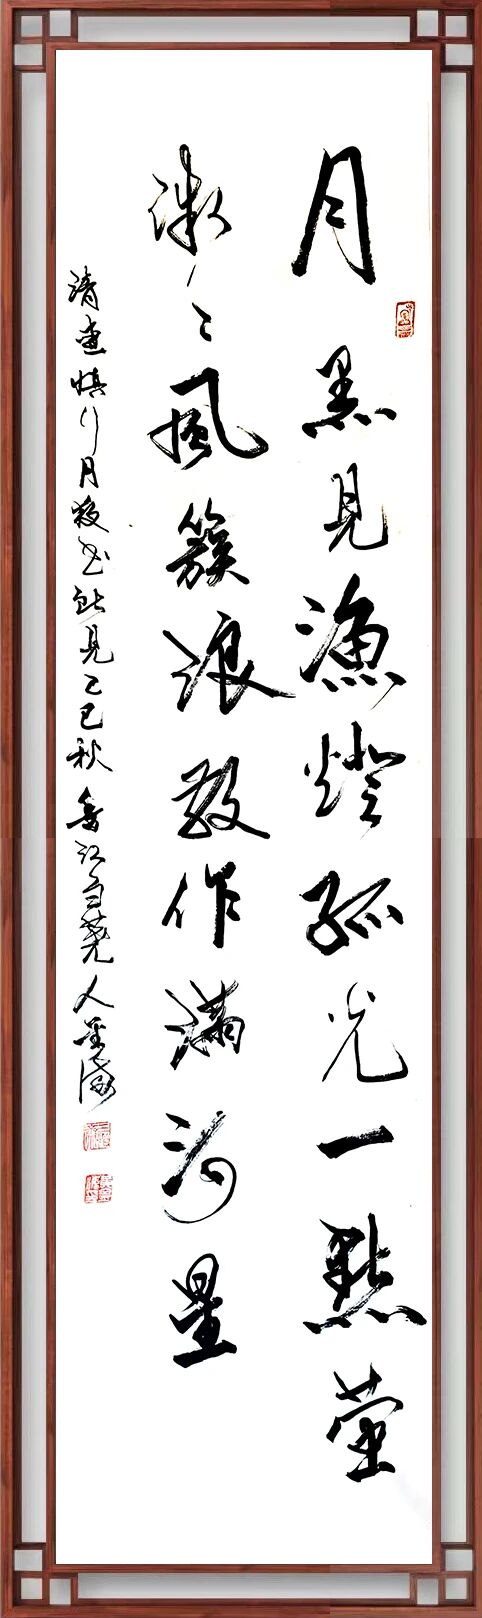 月黑見漁燈孤光一點萤
微〻風簇浪散作滿河星
清查慎行月夜书所見乙巳秋香江人